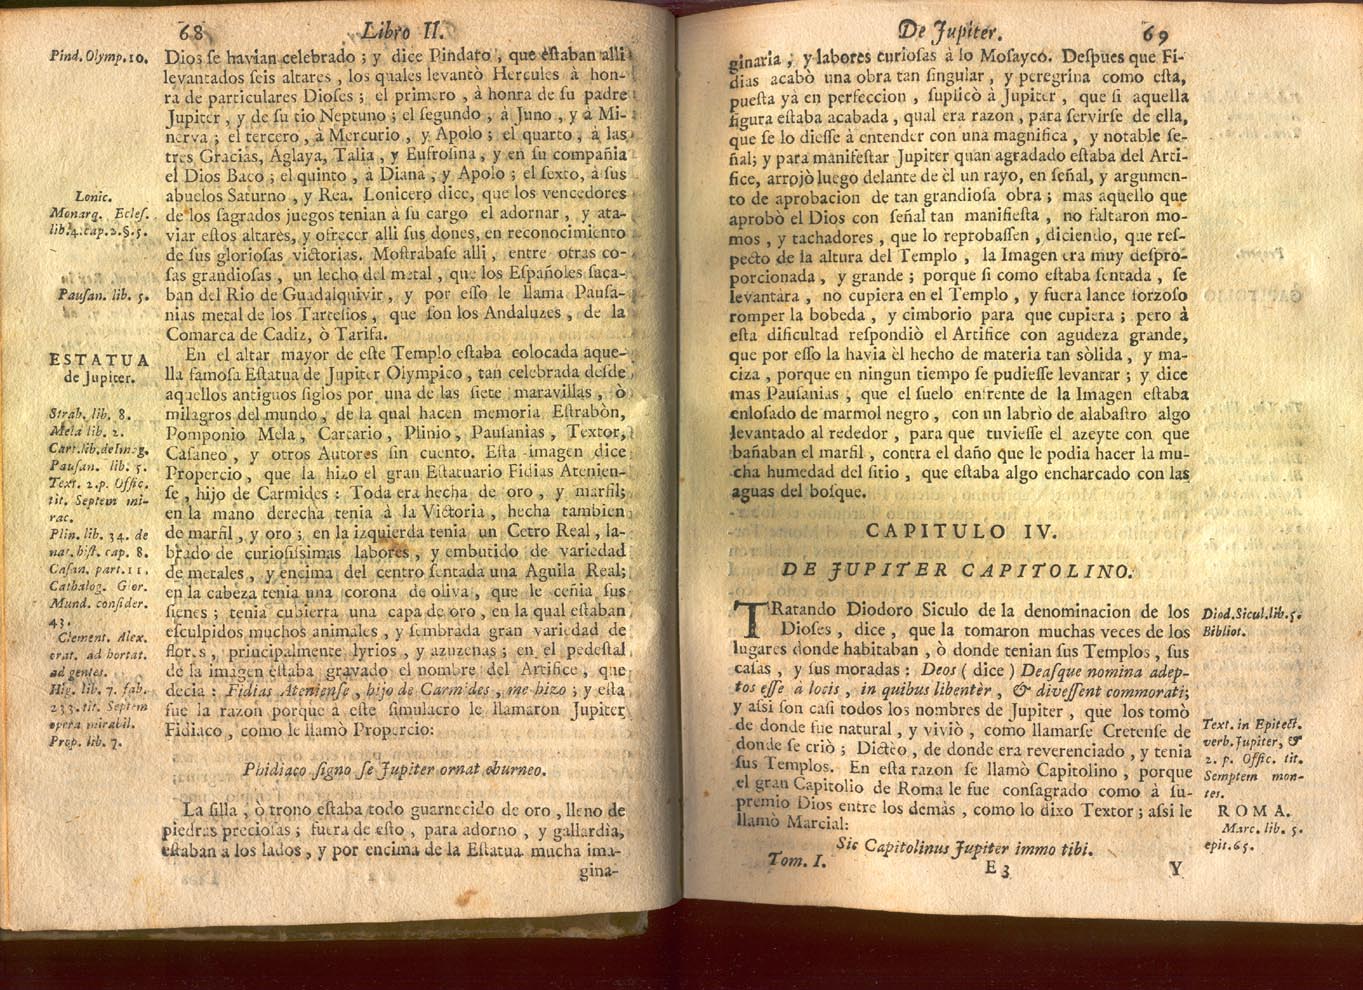 68 Libro II.
Pind. Olymp. 10.
Dios se havian celebrado ; y dice Pindaro , que èstaban alli
levantados seis altares , los quales levantò Hercules à hon-
ra de particulares Dioses ; el primero , à honra de su padre
Jupiter , y de su tio Neptuno ; el segundo , à Juno , y à Mi-
nerva ; el tercero , à Mercurio , y Apolo ; el quarto , à las
tres Gracias, Aglaya, Talia , y Eufrosina , y en su compañia
el Dios Baco ; el quinto , à Diana , y Apolo ; el sexto, à sus
abuelos Saturno , y Rea. Lonicero dice, que los vencedores
de los sagrados juegos tenian à su cargo el adornar , y ata-
viar estos altares, y ofrecer alli sus dones, en reconocimiento
de sus gloriosas victorias. Mostrabase alli , entre otras co-
sas grandiosas , un lecho del metal , que los Españoles saca-
ban del Rio de Guadalquivir , y por esso le llama Pausa-
nias metal de los Tartesios , que son los Andaluzes , de la
Comarca de Cadiz, ò Tarifa.
Lonic.
Monarq. Ecles.
lib.4.cap.2.§.5.
Pausan. lib. 5.
ESTATUA
de Jupiter.
En el altar mayor de este Templo estaba colocada aque-
lla famosa Estatua de Jupiter Olympico , tan celebrada desde
aquellos antiguos siglos por una de las siete maravillas , ò
milagros del mundo , de la qual hacen memoria Estrabòn,
Pomponio Mela , Cartario , Plinio , Pausanias , Textor,
Casaneo , y otros Autores sin cuento. Esta imagen dice
Propercio , que la hizo el gran Estatuario Fidias Atenien-
se , hijo de Carmides : Toda era hecha de oro , y marfil;
en la mano derecha tenia à la Victoria , hecha tambien
de marfil , y oro ; en la izquierda tenia un Cetro Real , la-
brado de curiosissimas labores , y embutido de variedad
de metales , y encima del centro sentada una Aguila Real;
en la cabeza tenia una corona de oliva , que le ceñia sus
sienes ; tenia cubierta una capa de oro , en la qual estaban
esculpidos muchos animales , y sembrada gran variedad de
flores , principalmente lyrios , y azuzenas ; en el pedestal
de la imagen estaba gravado el nombre del Artifice , que
decia : Fidias Ateniense , hijo de Carmides , me hizo ; y esta
fue la razon porque à este simulacro le llamaron Jupiter
Fidiaco , como le llamò Propercio:
Strab. lib. 8.
Mela lib. 2.
Cart.lib.de Imag.
Pausan. lib. 5.
Text. 2.p. Offic.
tit. Septem mi-
rac.
Plin. lib. 34. de
nat. hist. cap. 8.
Casan. part. 11.
Cathalog. Glor.
Mund. consider.
43.
Clement. Alex.
orat. ad hortat.
ad gentes.
Hig. lib. 7. fab.
233. tit. Septem
opera mirabil.
Prop. lib. 7.
Phidiaco signo se Jupiter ornat eburneo.
La silla , ò trono estaba todo guarnecido de oro , lleno de
piedras preciosas ; fuera de esto , para adorno , y gallardia,
estaban à los lados , y por encima de la Estatua mucha ima-
gina-
De Jupiter. 69
ginaria , y labores curiosas à lo Mosayco. Despues que Fi-
dias acabò una obra tan singular , y peregrina como esta,
puesta yà en perfeccion , suplicò à Jupiter , que si aquella
figura estaba acabada , qual era razon , para servirse de ella,
que se lo diesse à entender con una magnifica , y notable se-
ñal; y para manifestar Jupiter quan agradado estaba del Arti-
fice, arrojò luego delante de èl un rayo, en señal, y argumen-
to de aprobacion de tan grandiosa obra ; mas aquello que
aprobò el Dios con señal tan manifiesta , no faltaron mo-
mos , y tachadores , que lo reprobassen , diciendo, que res-
pecto de la altura del Templo , la Imagen era muy despro-
porcionada , y grande ; porque si como estaba sentada , se
levantara , no cupiera en el Templo , y fuera lance forzoso
romper la bobeda , y cimborio para que cupiera ; pero à
esta dificultad respondiò el Artifice con agudeza grande,
que por esso la havia èl hecho de materia tan sòlida , y ma-
ciza , porque en ningun tiempo se pudiesse levantar ; y dice
mas Pausanias , que el suelo enfrente de la Imagen estaba
enlosado de marmol negro , con un labrio de alabastro algo
levantado al rededor , para que tuviesse el azeyte con que
bañaban el marfil , contra el daño que le podia hacer la mu-
cha humedad del sitio , que estaba algo encharcado con las
aguas del bosque.
CAPITULO IV.
DE JUPITER CAPITOLINO.
TRatando Diodoro Siculo de la denominacion de los
Dioses , dice , que la tomaron muchas veces de los
lugares donde habitaban , ò donde tenian sus Templos , sus
casas , y sus moradas : Deos ( dice ) Deasque nomina adep-
tos esse à locis , in quibus libentèr , & divessent commorati;
y assi son casi todos los nombres de Jupiter , que los tomò
de donde fue natural , y viviò , como llamarse Cretense de
donde se criò ; Dictèo , de donde era reverenciado , y tenia
sus Templos. En esta razon se llamò Capitolino , porque
el gran Capitolio de Roma le fue consagrado como à su-
premio Dios entre los demàs , como lo dixo Textor ; assi le
llamò Marcial:
Diod.Sicul.lib.5.
Bibliot.
Text. in Epitect.
verb. Jupiter, &
2. p. Offic. tit.
Semptem mon-
tes.
ROMA.
Marc. lib. 5.
epit.65.
Sic Capitolinus Jupiter immo tibi.
Tom. I. E3 Y